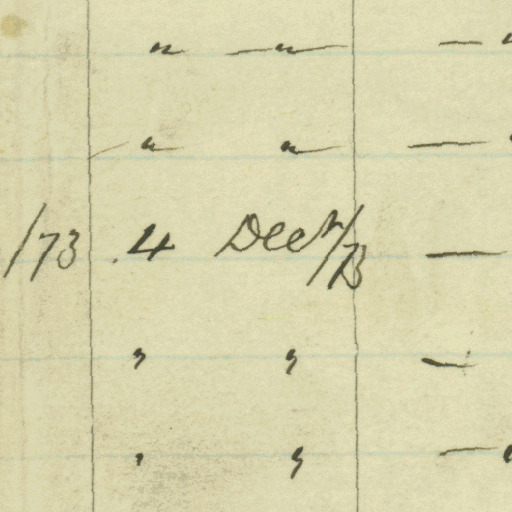 " — " — —
" " —
/73 4 Decr/73 —
" " —
" " —